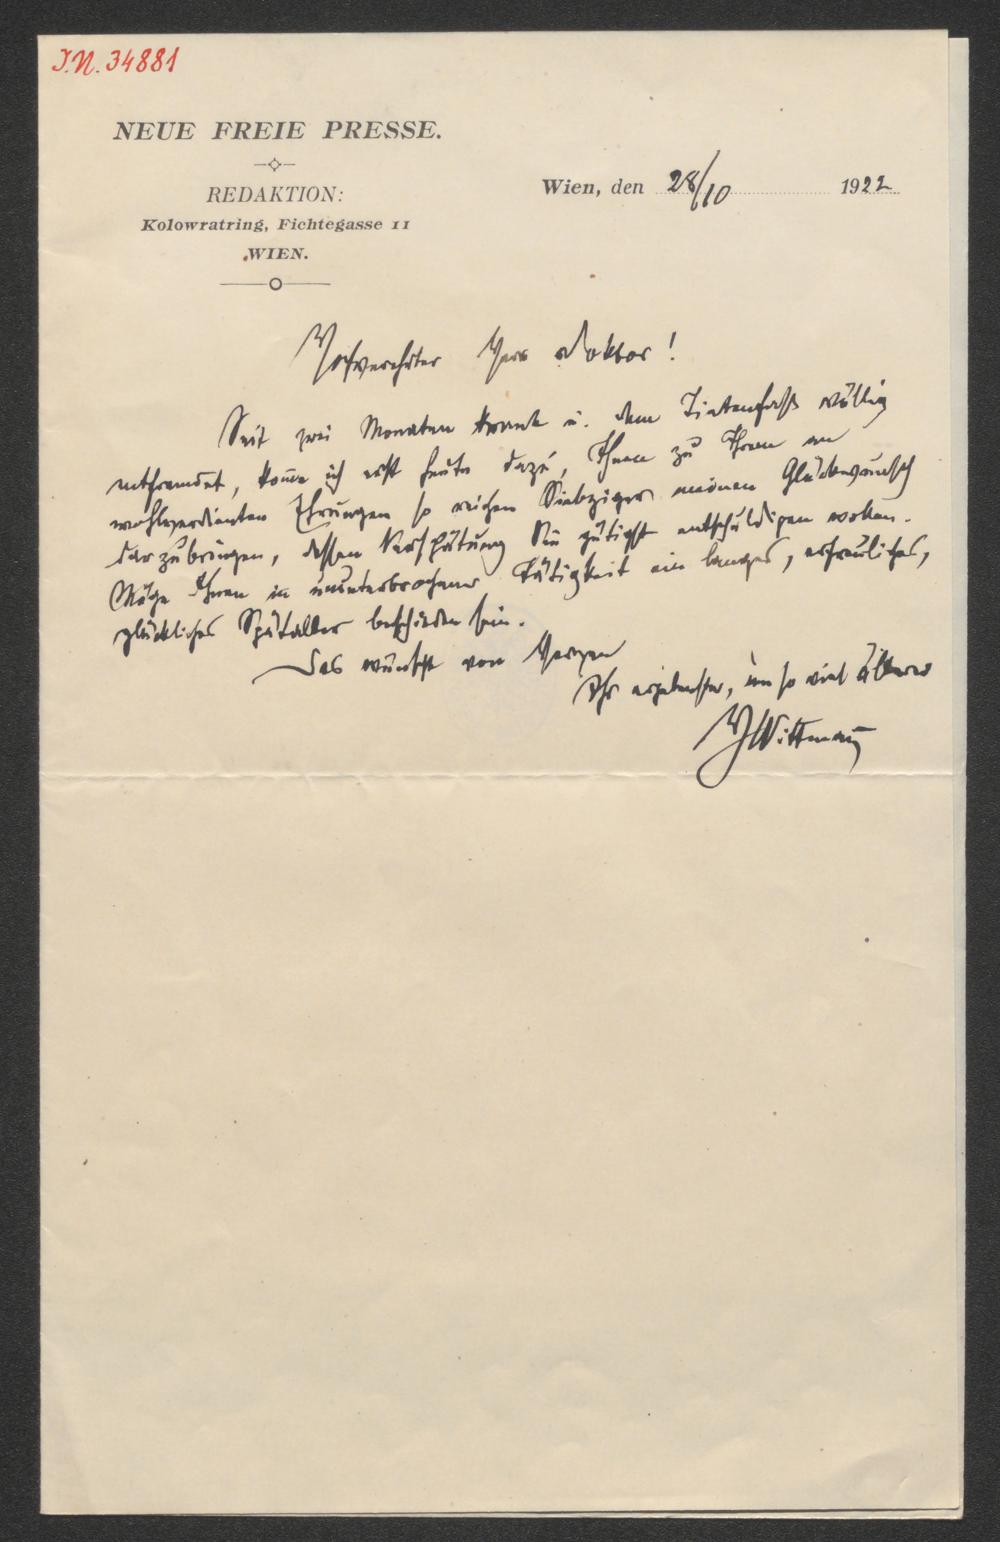 I.N. 34881
NEUE FREIE PRESSE.
REDAKTION:
Kolowratring, Fichtegasse 11
WIEN.
Wien, den 28/10 1922
Hochverehrter Herr Doktor!
Seit zwei Monaten krank u. dem Tintenfaß völlig
entfremdet, komme ich erst heute dazu, Ihnen zu Ihrem an
wohlverdienten Ehrungen so reichen Siebziger meinen Glückwunsch
darzubringen, dessen Verspätung Sie gütigst entschuldigen wollen.
Möge Ihnen in ununterbrochener Tätigkeit ein langes, erfreuliches,
glückliches Spätalter beschieden sein.
Das wünscht von Herzen
Ihr ergebenster, um so viel älterer
HWittmann